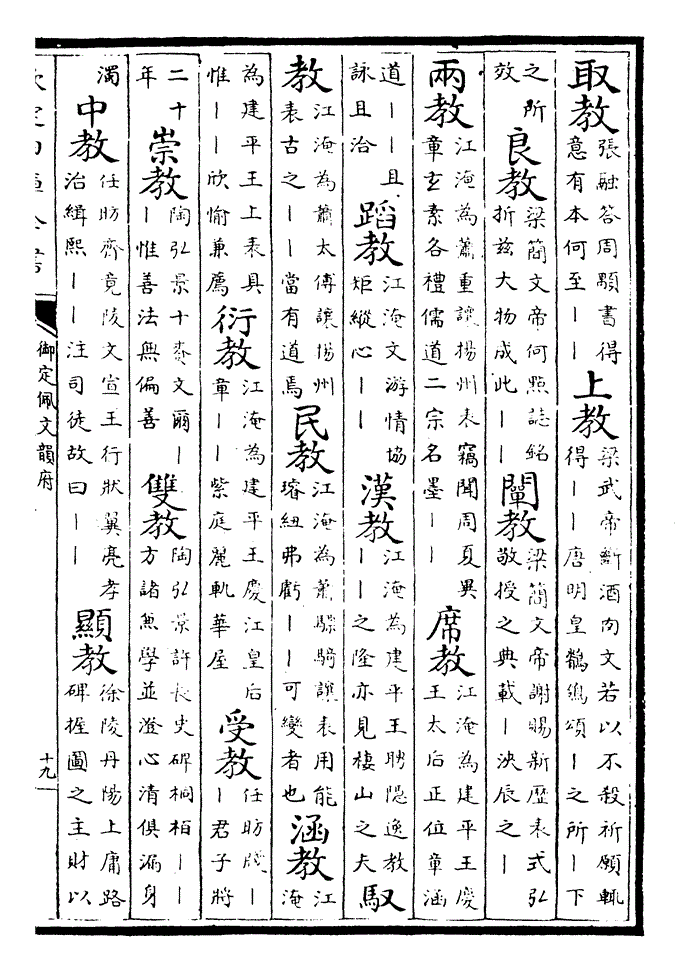 取教張融答周顒書得意有本何至丨丨上教梁武帝斷酒肉文若以不殺祈願輒得丨丨唐明皇鶺鴒頌丨之所丨下
之所效良教梁簡文帝何點誌銘折兹大物成此丨丨闡教梁簡文帝謝賜新歷表式弘敬授之典載丨浹辰之丨
兩教江淹為蕭重讓揚州表竊聞周夏異章玄素各禮儒道二宗名墨丨丨席教江淹為建平王慶王太后正位章涵
道丨丨且詠且洽蹈教江淹文游情協矩縱心丨丨漢教江淹為建平王聘隠逸教丨丨之隆亦見棲山之夫馭
教江淹為蕭太傅讓揚州表古之丨丨當有道焉民教江淹為蕭驃騎讓表用能璿紐弗虧丨丨可變者也涵教江淹
為建平王上表具惟丨丨欣愉兼薦衍教江淹為建平王慶江皇后章丨丨紫庭麗軌華屋受教任昉牋丨丨君子將
二十年崇教陶弘景十賚文爾丨丨惟善法無偏善雙教陶弘景許長史碑桐柏丨丨方諸無學並澄心清俱漏身
濁中教任昉齊竟陵文宣王行狀翼亮孝治緝熙丨丨注司徒故曰丨丨顯教徐陵丹陽上庸路碑握圖之主財以
欽定四庫全書
御定佩文韻府
十九